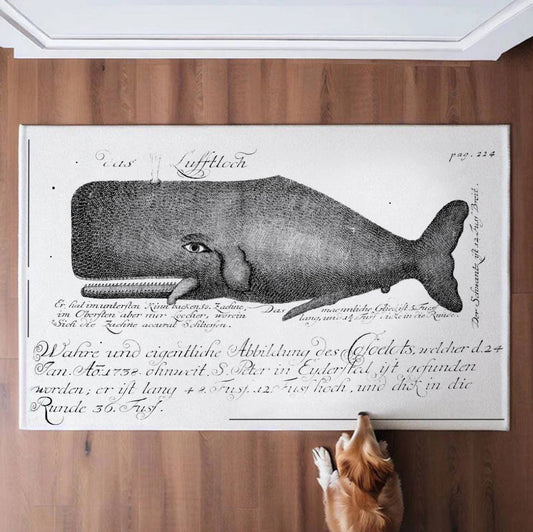 das Lufftloch
pag. 224
Er hat im untersten Kinn backen 52. Zaehne,
im Obersten aber nur Loecher, worein
Sich die Zaehne accurat Schliessen.
Das maennliche Glied ist 3. Fuss
lang, und 1½ Fuss dicke in die Runde.
Der Schwantz ist 12. Fuss Breit.
Wahre und eigentliche Abbildung des Cachelots, welcher d. 24
Jan. Ao. 1738. ohnweit. S. Peter in Eydersted, ist gefunden
worden; er ist lang 48. Fuss. 12. Fuss hoch, und dick in die
Runde 36. Fuss.